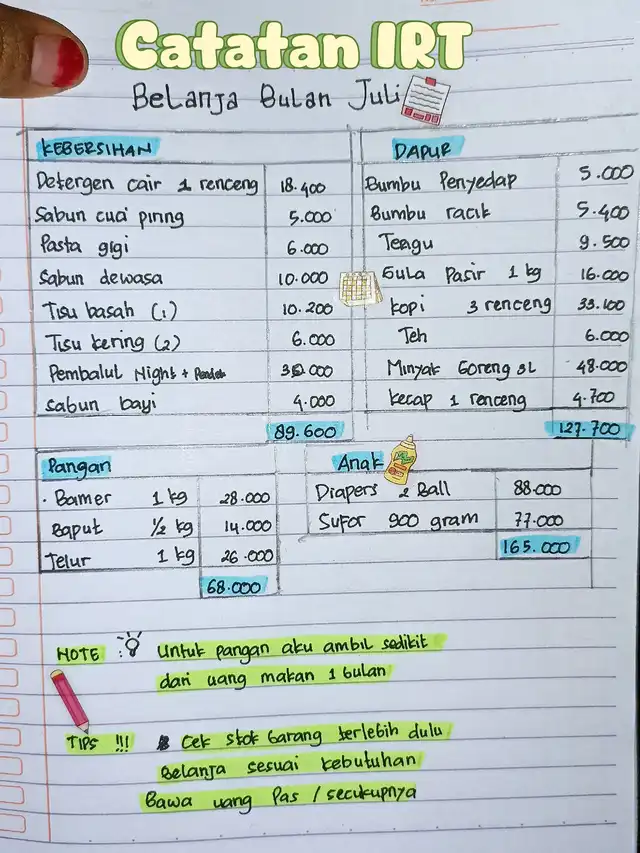 Catatan IRT
Belanja Bulan Juli
KEBERSIHAN
Detergen cair 1 renceng 18.400
Sabun cuci piring 5.000
Pasta gigi 6.000
Sabun dewasa 10.000
Tisu basah (1) 10.200
Tisu kering (2) 6.000
Pembalut Night + 30.000
Sabun bayi 4.000
89.600
DAPUR
Bumbu Penyedap 5.000
Bumbu racik 5.400
Terigu 9.500
Gula Pasir 1 kg 16.000
kopi 3 renceng 33.100
Teh 6.000
Minyak Goreng 3L 48.000
kecap 1 renceng 4.700
127.700
Pangan
Bamer 1 kg 28.000
Baput 1/2 kg 14.000
Telur 1 kg 26.000
68.000
Anak
Diapers 2 Ball 88.000
Sufor 900 gram 77.000
165.000
NOTE : Untuk pangan aku ambil sedikit
dari uang makan 1 bulan
TIPS !!! Cek stok barang terlebih dulu
Belanja sesuai kebutuhan
Bawa uang Pas / secukupnya